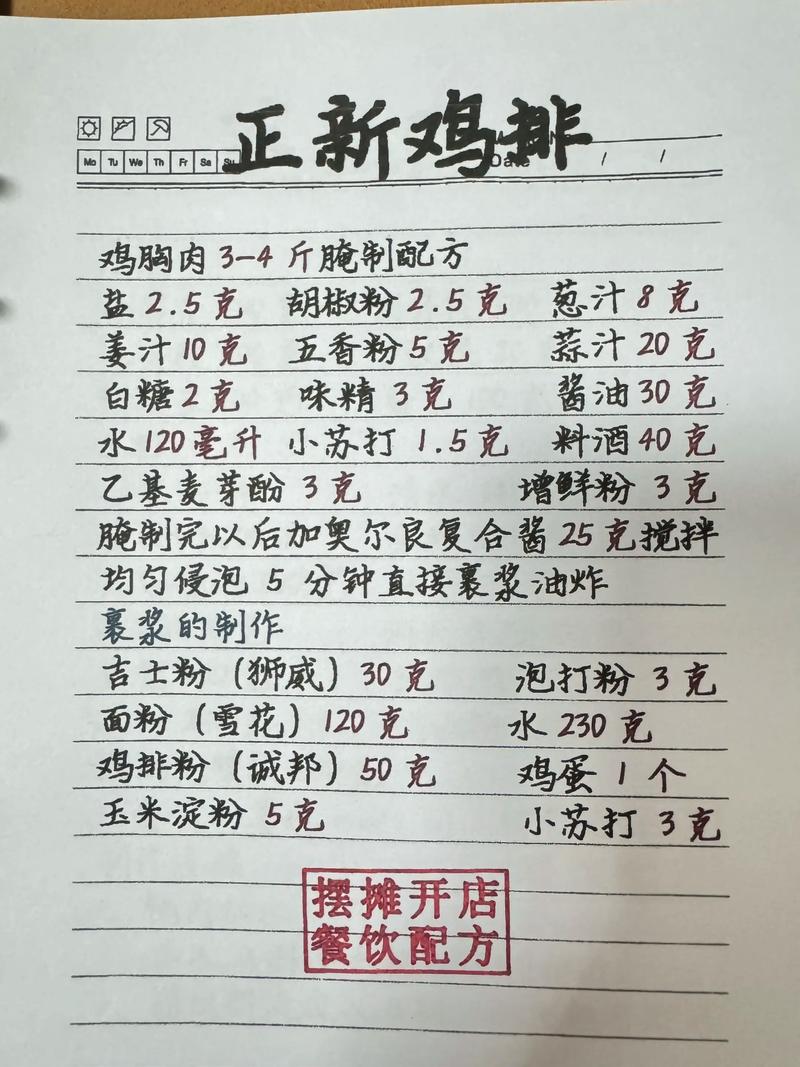 正新鸡排
Mo Tu We Th Fr Sa Su
Date / /
鸡胸肉 3-4 斤腌制配方
盐 2.5 克 胡椒粉 2.5 克 葱汁 8 克
姜汁 10 克 五香粉 5 克 蒜汁 20 克
白糖 2 克 味精 3 克 酱油 30 克
水 120 毫升 小苏打 1.5 克 料酒 40 克
乙基麦芽酚 3 克 增鲜粉 3 克
腌制完以后加奥尔良复合酱 25 克搅拌
均匀侵泡 5 分钟直接裹浆油炸
裹浆的制作
吉士粉（狮威）30 克 泡打粉 3 克
面粉（雪花）120 克 水 230 克
鸡排粉（诚邦）50 克 鸡蛋 1 个
玉米淀粉 5 克 小苏打 3 克
摆摊开店
餐饮配方